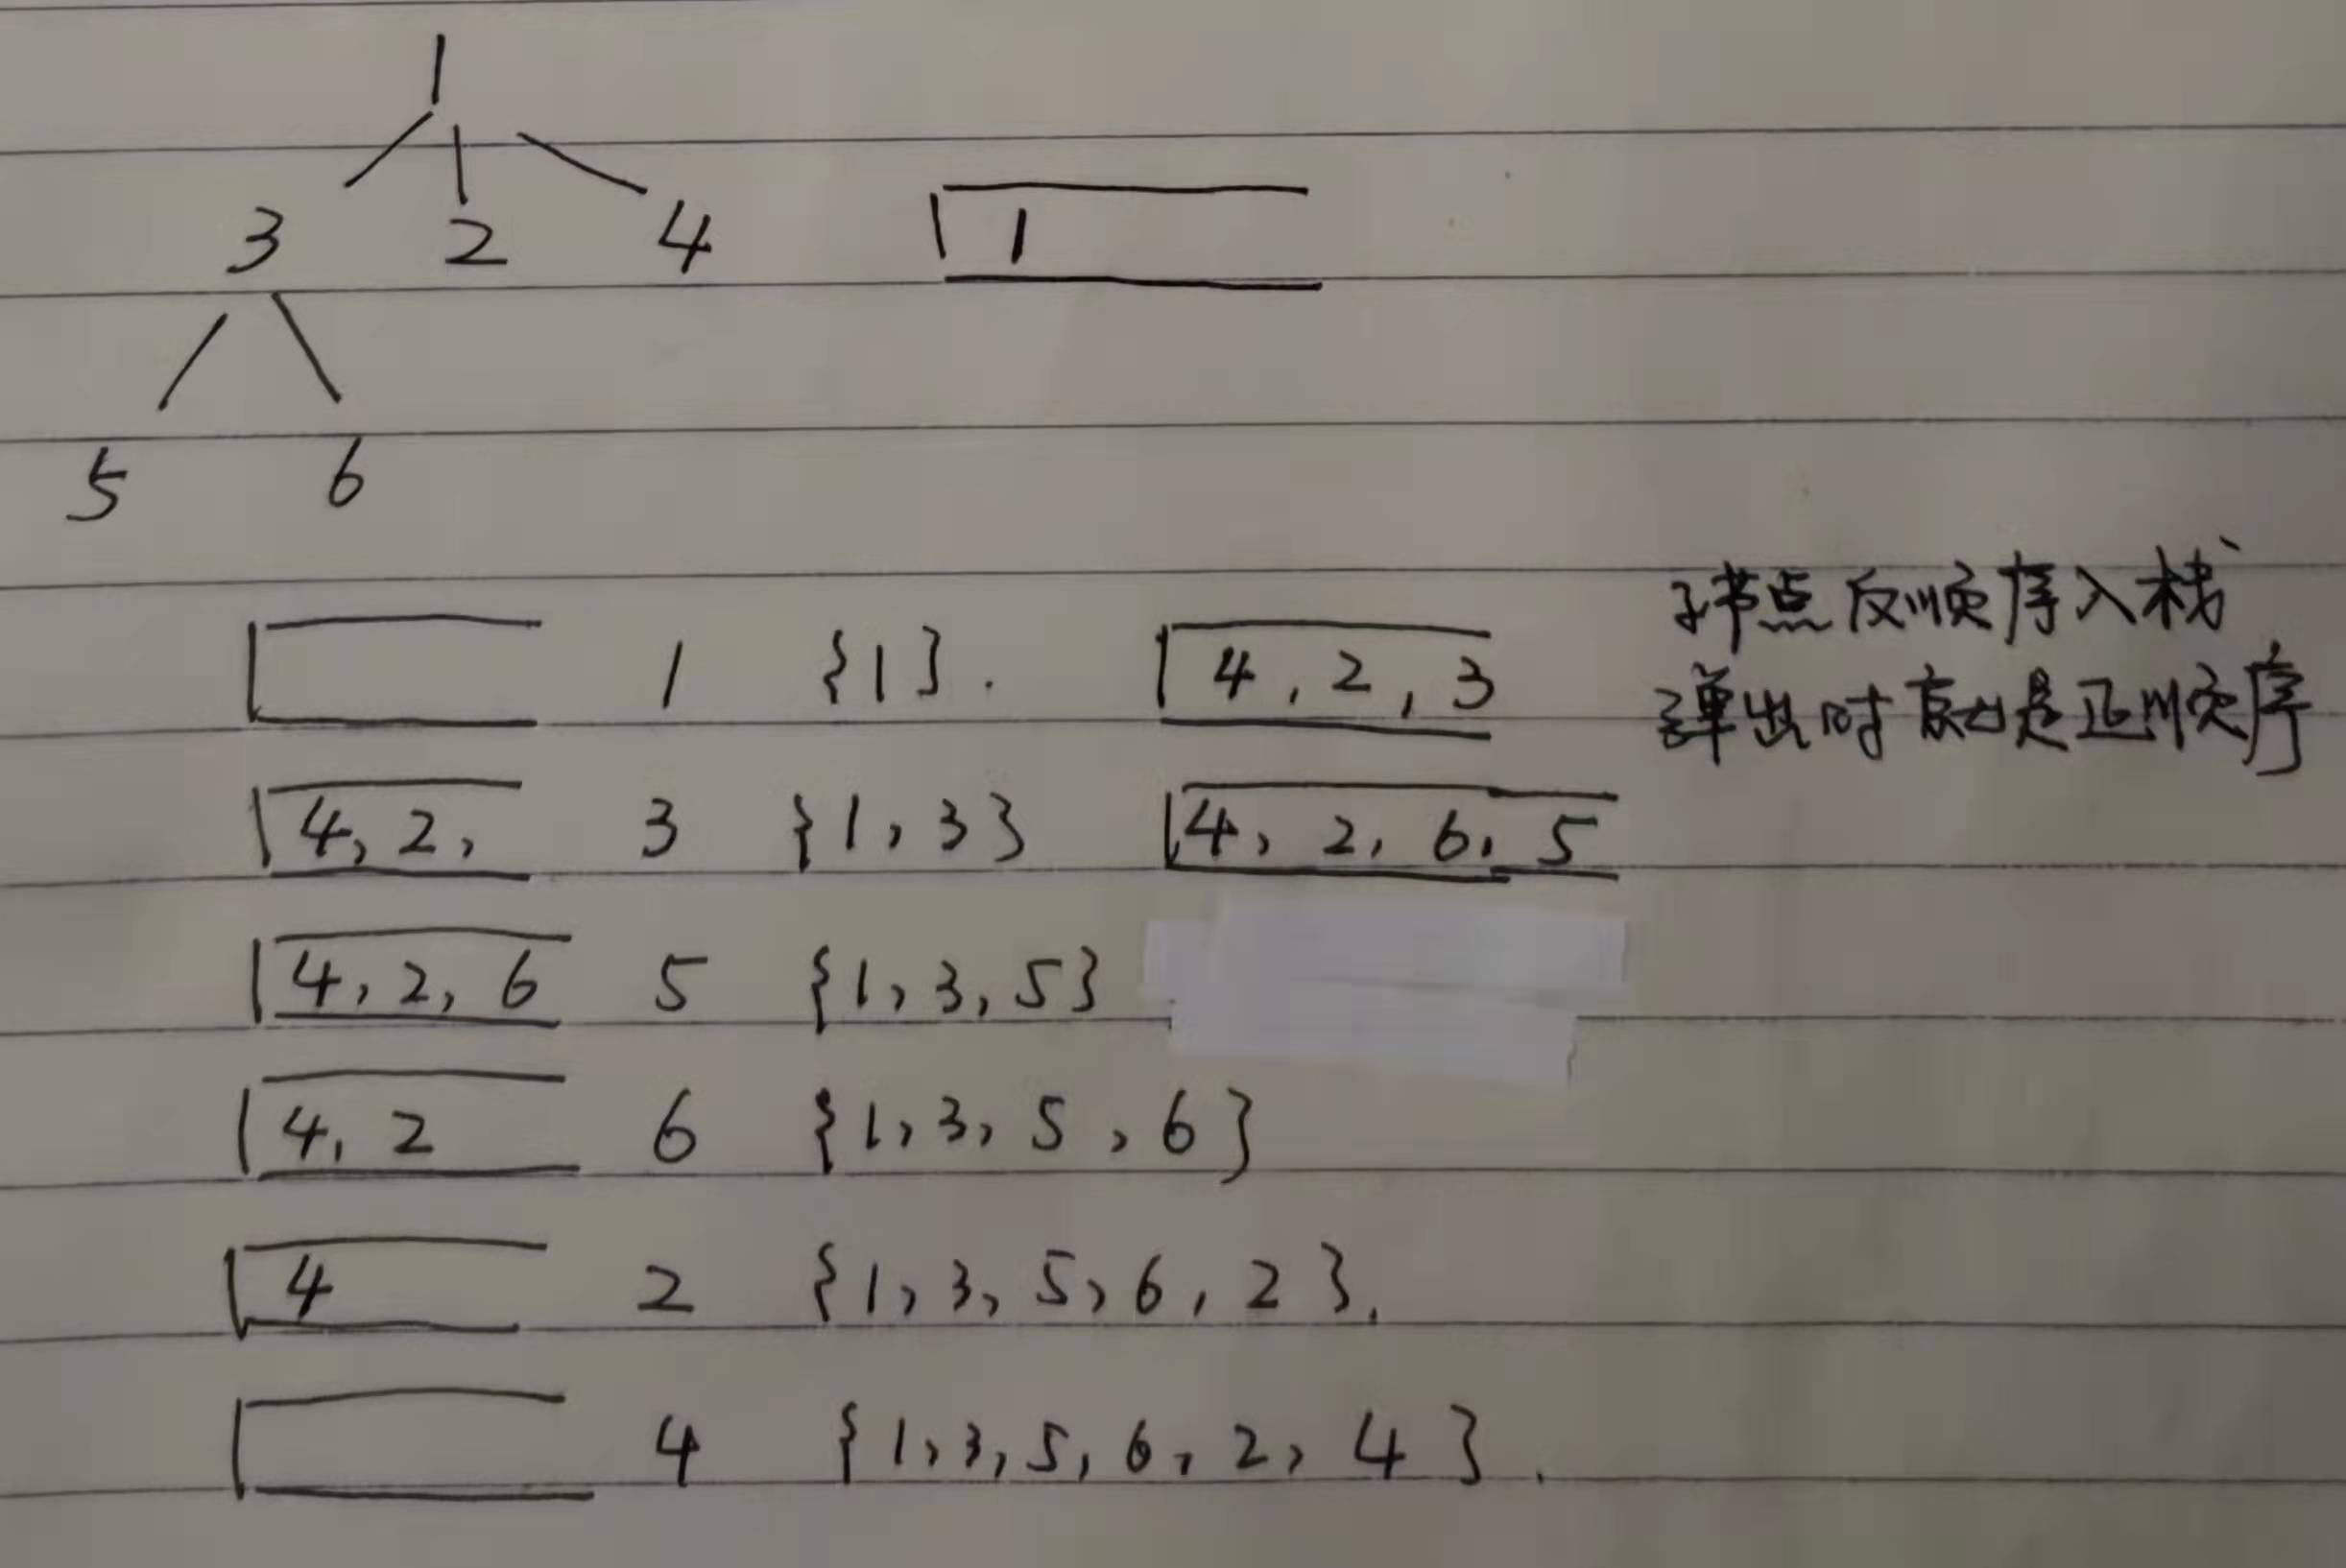 1
3 2 4
1
5 6
子节点反顺序入栈
1 {1}. 4,2,3
弹出时就是正顺序
4,2, 3 {1,3} 4,2,6,5
4,2,6 5 {1,3,5}
4,2 6 {1,3,5,6}
4 2 {1,3,5,6,2}.
4 {1,3,5,6,2,4}.